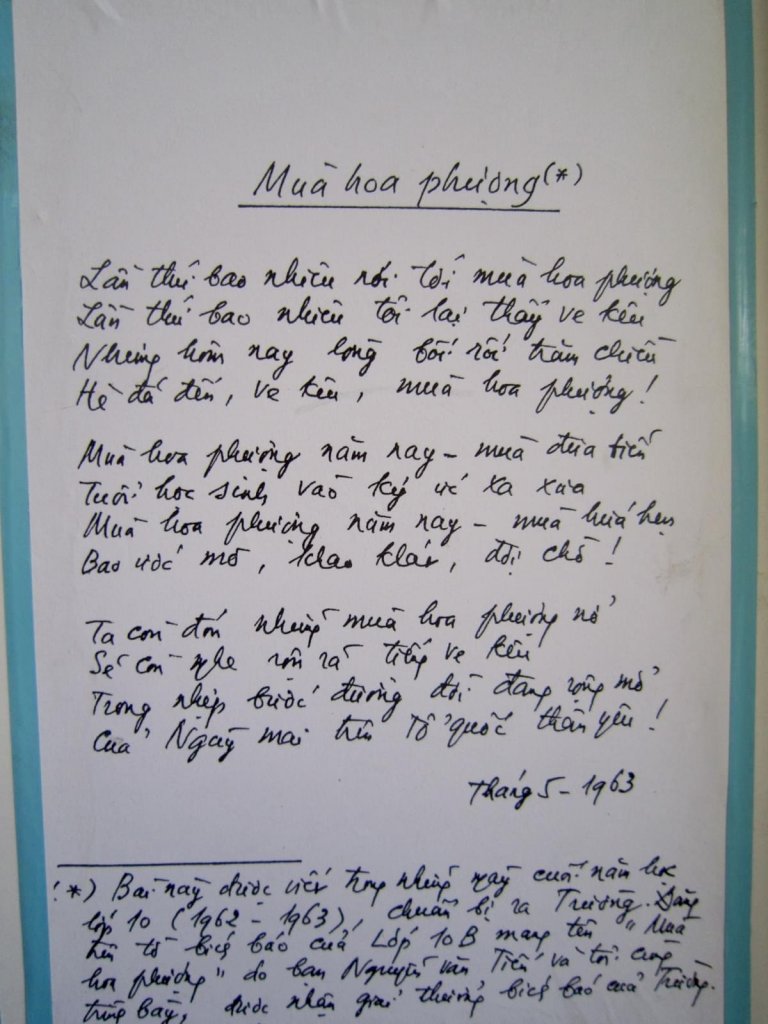 Mùa hoa phượng (*)
Lần thứ bao nhiêu nói tới mùa hoa phượng
Lần thứ bao nhiêu tôi lại thấy ve kêu
Nhưng hôm nay lòng bối rối trăm chiều
Hè đã đến, ve kêu, mùa hoa phượng!
Mùa hoa phượng năm nay – mùa đưa tiễn
Tuổi học sinh vào ký ức xa xưa
Mùa hoa phượng năm nay – mùa hứa hẹn
Bao ước mơ, khao khát, đợi chờ!
Ta còn đón những mùa hoa phượng nở
Sẽ còn nghe rộn rã tiếng ve kêu
Trong nhịp bước đường đời đang rộng mở
Của Ngày mai trên Tổ quốc thân yêu!
Tháng 5 – 1963
(*) Bài này được viết trong những ngày cuối năm học
lớp 10 (1962 – 1963), chuẩn bị ra Trường. Đăng
trên tờ bích báo của Lớp 10B mang tên "Mùa
hoa phượng" do bạn Nguyễn Văn Tiến và tôi cùng
trưng bày, được nhận giải thưởng bích báo của Trường.